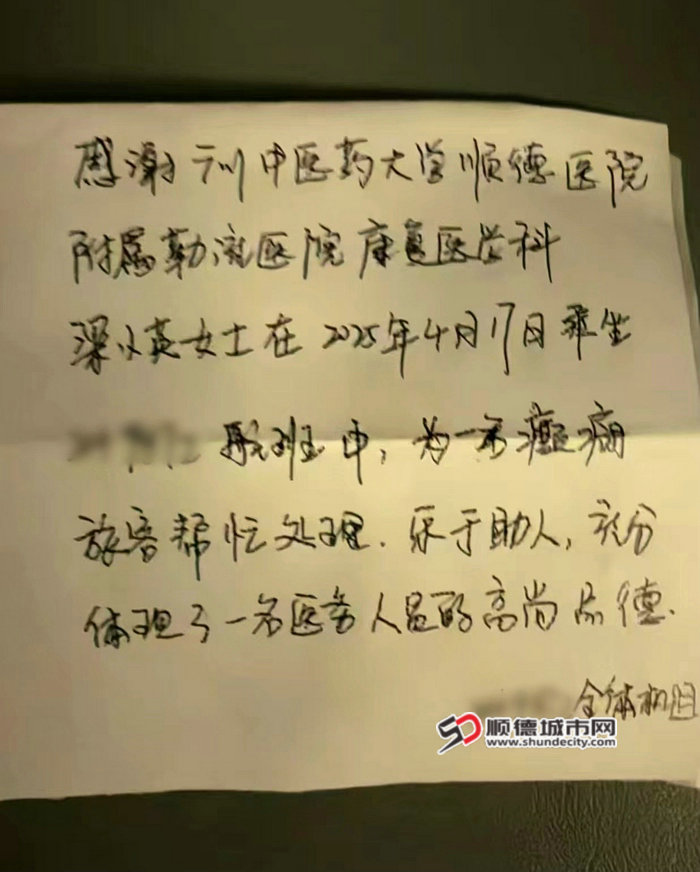 感谢广州中医药大学顺德医院
附属勒流医院康复医学科
梁小英女士在2025年4月17日乘坐
航班中，为一名癫痫
旅客帮忙处理.乐于助人，充分
体现了一名医务人员的高尚品德.
全体机组
顺德城市网
www.shundecity.com